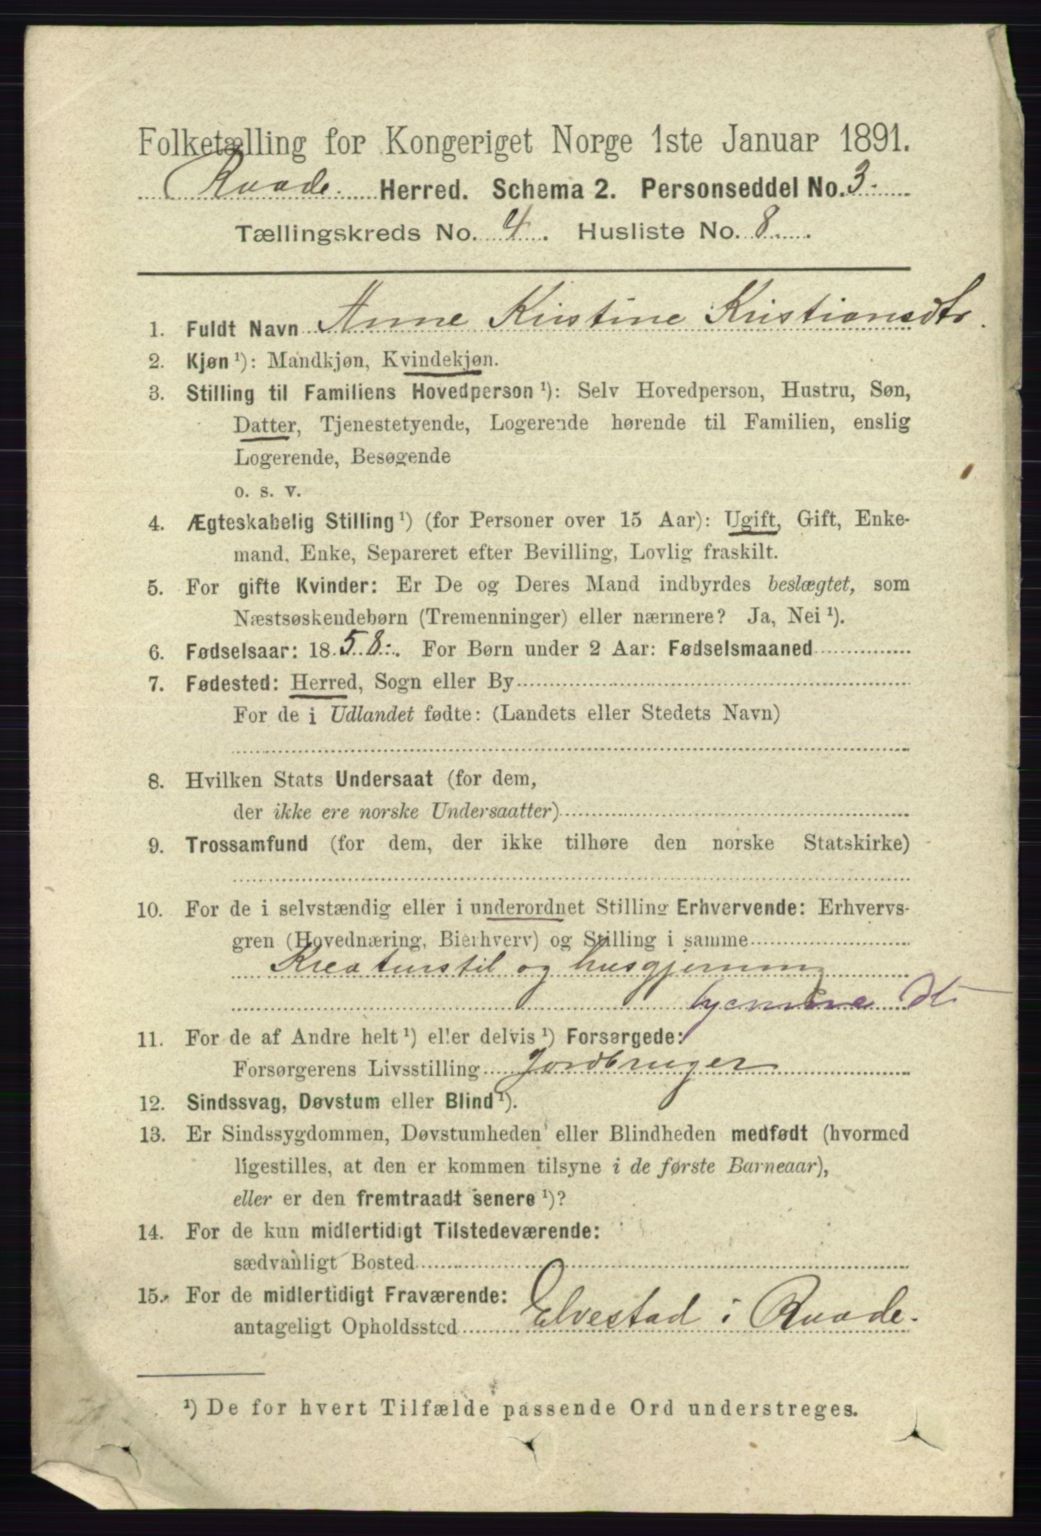 Folketælling for Kongeriget Norge 1ste Januar 1891.
Raade. Herred. Schema 2. Personseddel No. 3.
Tællingskreds No. 4. Husliste No. 8.
1. Fuldt Navn Anne Kristine Kristiansdtr.
2. Kjøn ¹): Mandkjøn, Kvindekjøn.
3. Stilling til Familiens Hovedperson ¹): Selv Hovedperson, Hustru, Søn,
Datter, Tjenestetyende, Logerende hørende til Familien, enslig
Logerende, Besøgende
o. s. v.
4. Ægteskabelig Stilling ¹) (for Personer over 15 Aar): Ugift, Gift, Enke-
mand, Enke, Separeret efter Bevilling, Lovlig fraskilt.
5. For gifte Kvinder: Er De og Deres Mand indbyrdes beslægtet, som
Næstsøskendebørn (Tremenninger) eller nærmere? Ja, Nei ¹).
6. Fødselsaar: 1858. For Børn under 2 Aar: Fødselsmaaned
7. Fødested: Herred, Sogn eller By
For de i Udlandet fødte: (Landets eller Stedets Navn)
8. Hvilken Stats Undersaat (for dem,
der ikke ere norske Undersaatter)
9. Trossamfund (for dem, der ikke tilhøre den norske Statskirke)
10. For de i selvstændig eller i underordnet Stilling Erhvervende: Erhvervs-
gren (Hovednæring, Bierhverv) og Stilling i samme
Kreaturstel og husgjerning
hjemme dt
11. For de af Andre helt ¹) eller delvis ¹) Forsørgede:
Forsørgerens Livsstilling Jordbruger
12. Sindssvag, Døvstum eller Blind ¹).
13. Er Sindssygdommen, Døvstumheden eller Blindheden medfødt (hvormed
ligestilles, at den er kommen tilsyne i de første Barneaar),
eller er den fremtraadt senere ¹)?
14. For de kun midlertidigt Tilstedeværende:
sædvanligt Bosted
15. For de midlertidigt Fraværende:
antageligt Opholdssted Elvestad i Raade.
¹) De for hvert Tilfælde passende Ord understreges.